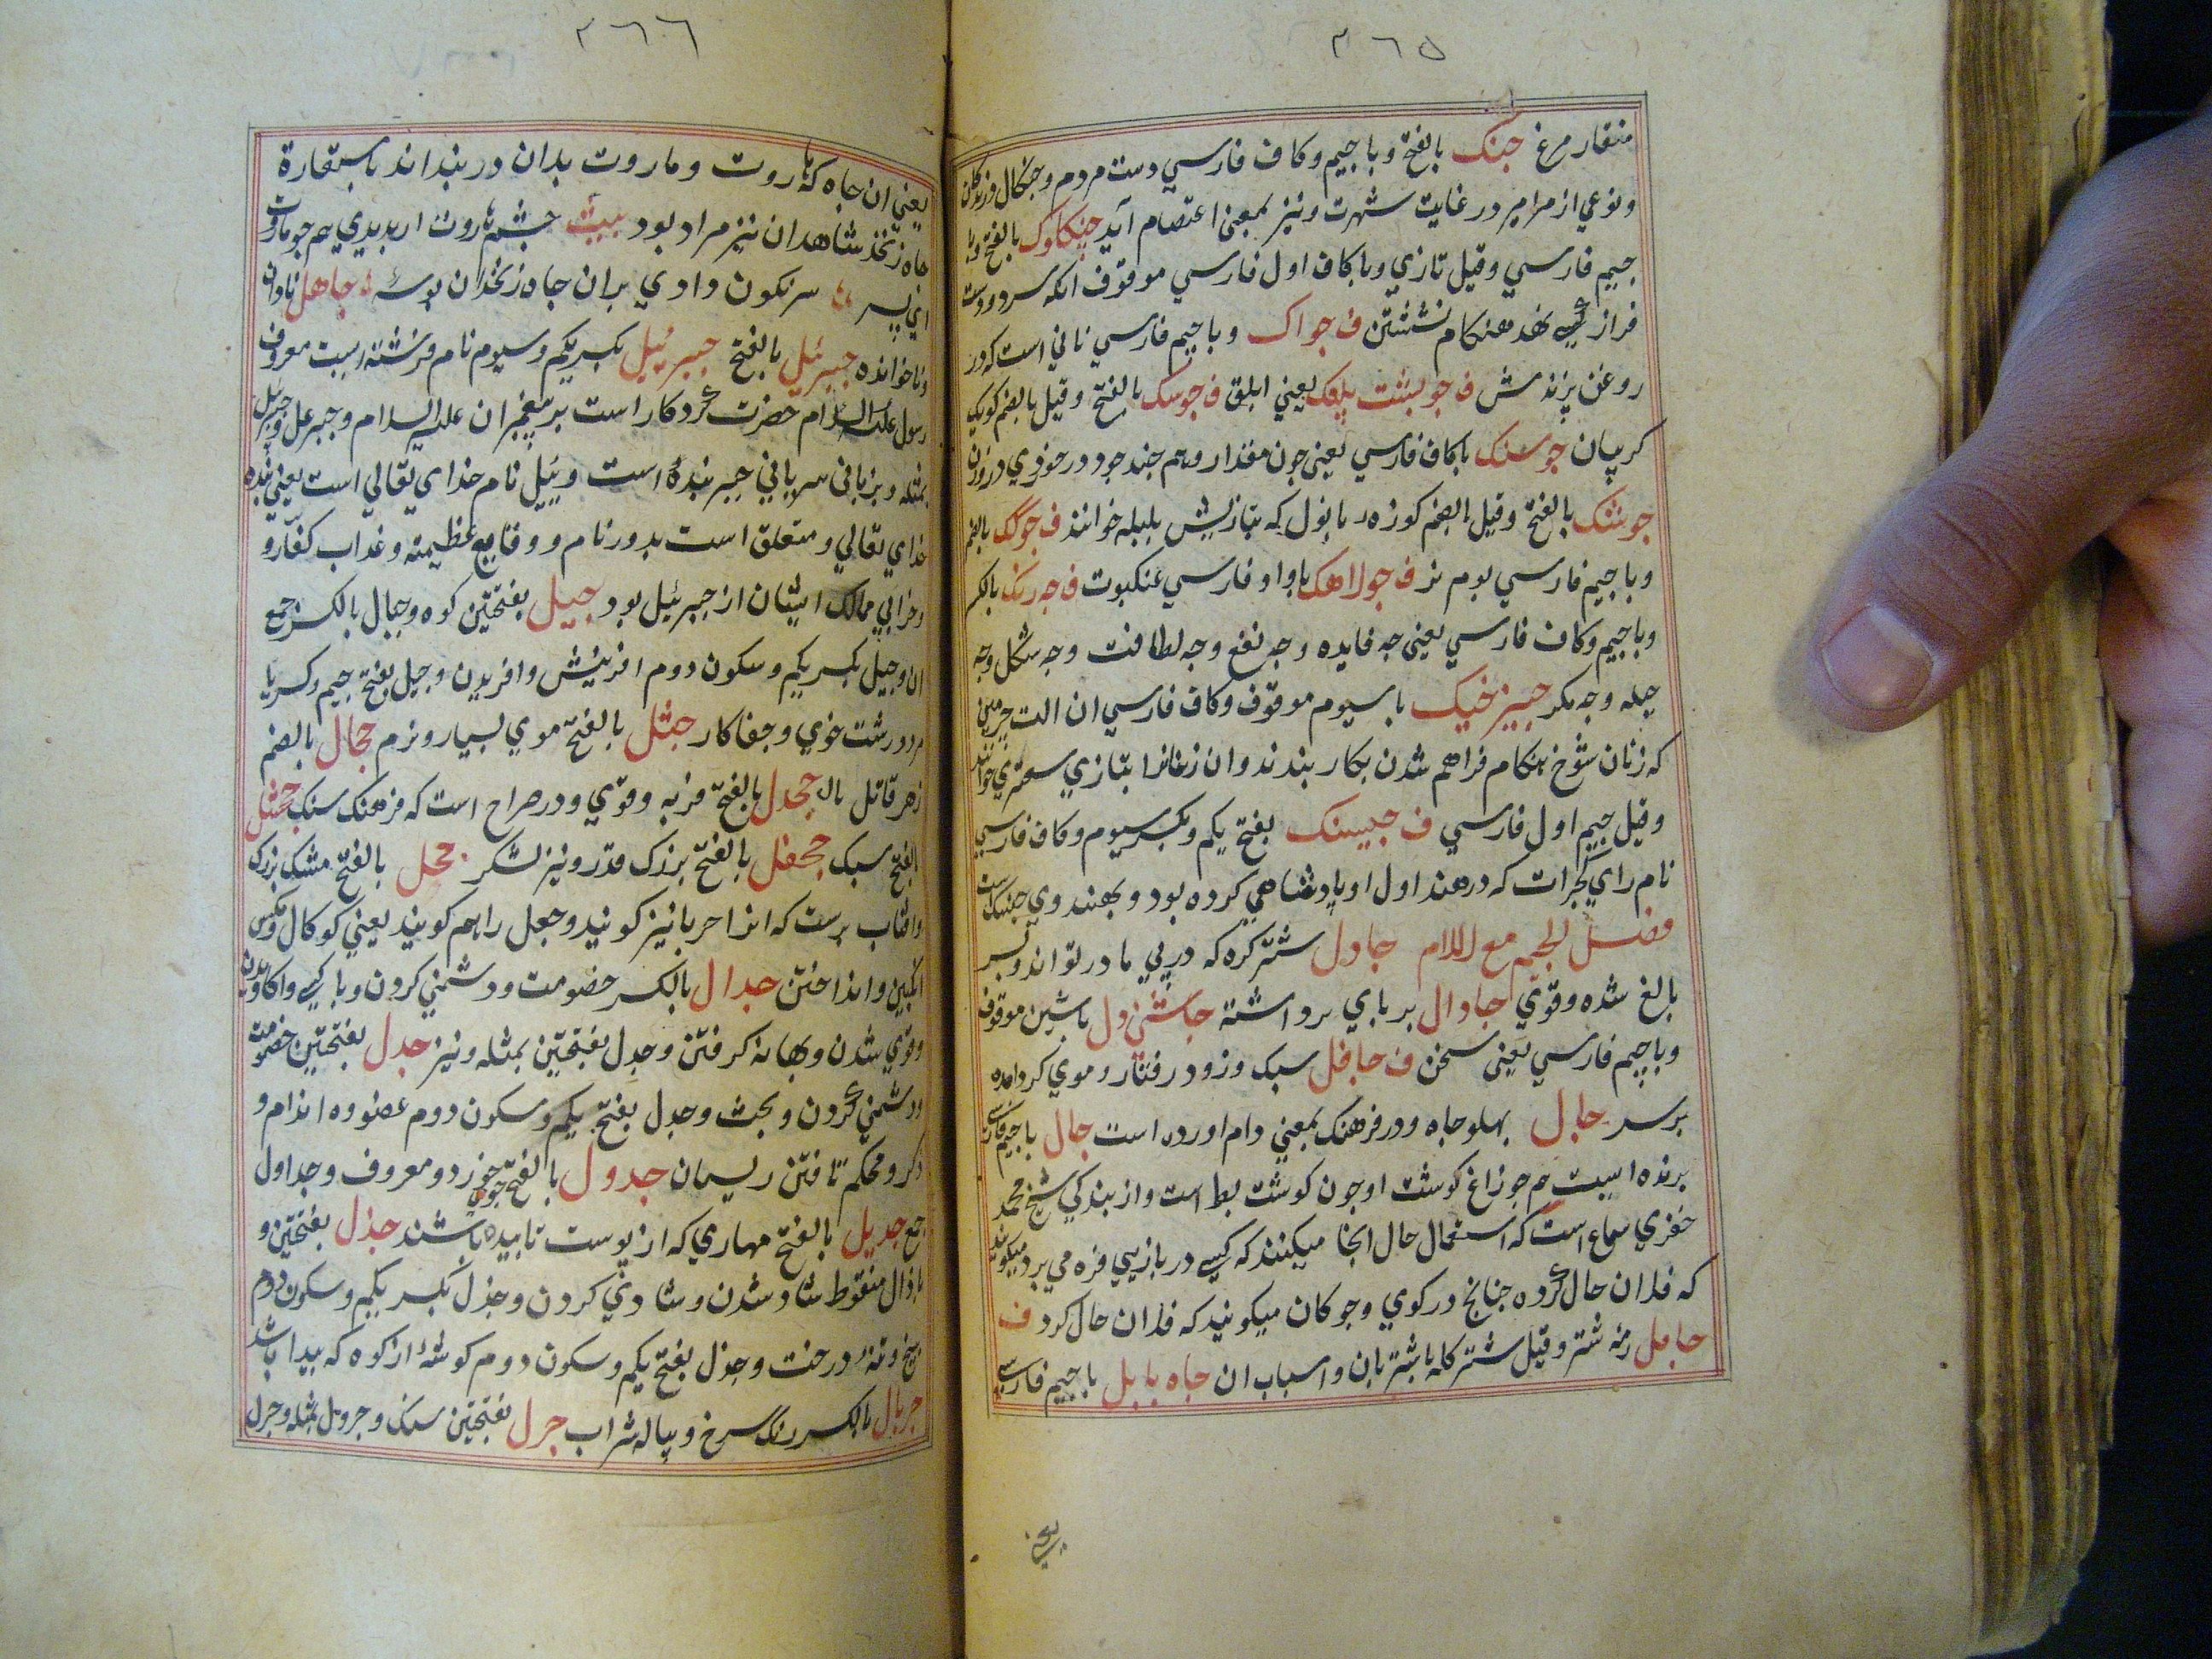 ٣٦٥
منقار مرغ جنک بالفتح وبا جیم وکاف فارسي دست مردم وجنکال
ونوعي از مزامیر در غایت شهرت ونیز بمعنی اعتصام آید جنکاوک بالفتح وبا
جیم فارسي وقیل تازي وبا کاف اول فارسي موقوف انکه سر ودست
فراز نهد هنکام نشستن ف جواک وبا جیم فارسي ناني است که در
روغن پزندش ف جو پلپک یعني ابلق ف جوسک بالفتح وقیل بالضم کویک
کریبان جوسنک باکاف فارسي یعنی جون مقدار وهم جند جو در خوردي در وزن
جوشک بالفتح وقیل بالضم کوزهء با نول که بتازیش بلبله خوانند ف جوکک بالضم
وبا جیم فارسي بوم نر ف جولاهک با واو فارسي عنکبوت ف جه رنک بالکسر
وبا جیم وکاف فارسي یعنی جه فایده وجه نفع وجه لطافت وجه شکل وجه
حیله وجه مکر با سیوم موقوف وکاف فارسي ان الت جرمین
که زنان شوخ هنکام فراهم شدن بکار بندند وان زنانرا بتازي سعتري خوانند
وقیل جیم اول فارسي ف جیسنک بفتح یکم وبکسر سیوم وکاف فارسي
نام راي کجرات که در هند اول او پادشاهي کرده بود وبهندوي جیسنک است
فصل الجیم مع اللام جاول شتر کره که در پي مادر تواند وبسر
بالغ شده وقوي جاوال بر باي برداشته با شین موقوف
وبا جیم فارسي یعنی سخن ف جافل سبک وزود رفتار وموي کرد امده
بر سر جال بهلو جاه ودر فرهنک بمعني دام اورده است جال با جیم فارسي
برنده ایست هم جو زاغ کوشت او جون کوشت بط است واز بندکي شیخ محمد
خضري سماع است که استعمال حال انجا میکنند که کسي در بازیي فزه مي برد میکویند
که فلان حال کرده جنانج در کوي وجوکان میکویند که فلان حال کرد ف
جامل رمه شتر وقیل شتر کله با شتربان واسباب ان جاه بابل با جیم فارسي
یعني
٣٦٦
یعني ان جاه که هاروت وماروت بدان در بند اند باستعارة
جاه زنخ شاهدان نیز مراد بود بیت جشم هاروت ار بدیدي هم جو ماروت
اي پسر سرنکون دادي بران جاه زنخدان بوسه جاهل نادان
وناخوانده جبرئیل بالفتح جبرئیل بکسر یکم وسیوم نام فرشته ایست معروف
رسول علیه السلام حضرت کردکار است بر پیغمبران علیه السلام وجبرعل وجبریل
بمثله وبزباني سریاني جبر بنده است وئیل نام خداي تعالي است یعني بنده
خداي تعالي ومتعلق است بدور نام ووقایع عظیمه وعذاب کفّار و
وخرابي ممالک ایشان از جبرئیل بود جبل بفتحتین کوه وجبال بالکسر جمع
ان وجبل بکسر یکم وسکون دوم افرینش وافریدن وجبل بفتح جیم وکسر با
مرد درشت خوي وجفاکار جثل بالفتح موي بسیار ونرم جحال بالضم
زهر قاتل جحدل بالفتح فربه وقوي ودر صراح است که فرهنک سنک جحفل
بالفتح سبک جحفل بالفتح بزرک قدر ونیز لشکر جحل بالفتح مشک بزرک
وافتاب پرست که انرا حربا نیز کویند وجعل را هم کویند یعني کوکال ومکس
انکبین وانداختن جدال بالکسر خصومت ودشمني کردن وبا کسي واکاویدن
وقوي شدن وبهانه کرفتن وجدل بفتحتین بمثله ونیز جدل بفتحتین خصومت
ودشمني کردن وبحث وجدل بفتح یکم وسکون دوم عضو وه اندام و
ذکر ومحکم تافتن ریسمان جدول بالفتح جوي خورد ومعروف وجداول
جمع جدیل بالفتح مهاري که از پوست تابیده باشند جذل بفتحتین و
با ذال منقوط شاد شدن وشادي کردن وجذل بکسر یکم وسکون دوم
بیخ وتنهء درخت وجذل بفتح یکم وسکون دوم کوشهء از کوه که پیدا باشد
جریال بالکسر رنک سرخ وپیاله شراب جرل بفتحتین سنک وجرول بمثله وجرل